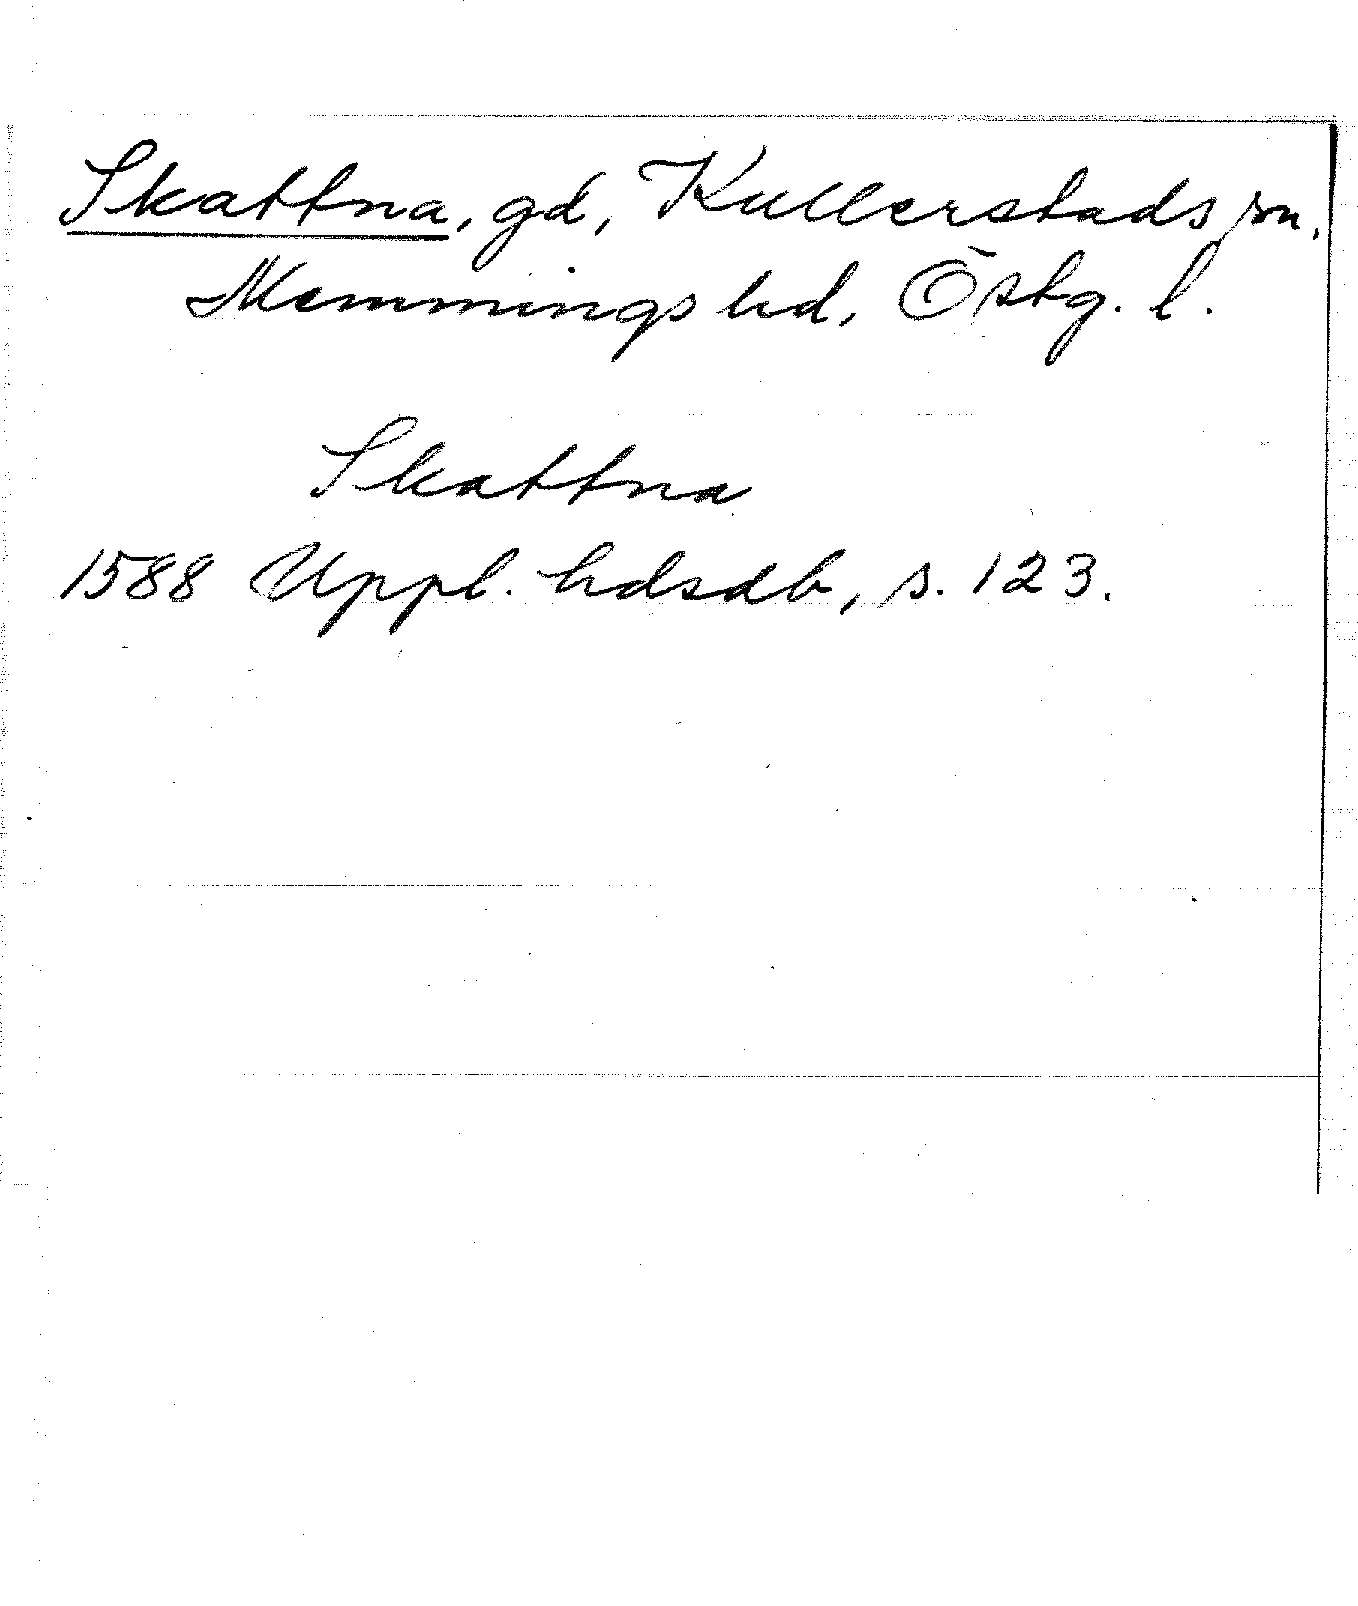 Skattna, gd, Kullerstads sn.
Memmings hd, Östg. l.
Skattna
1588 Uppl. hdsdb, s. 123.